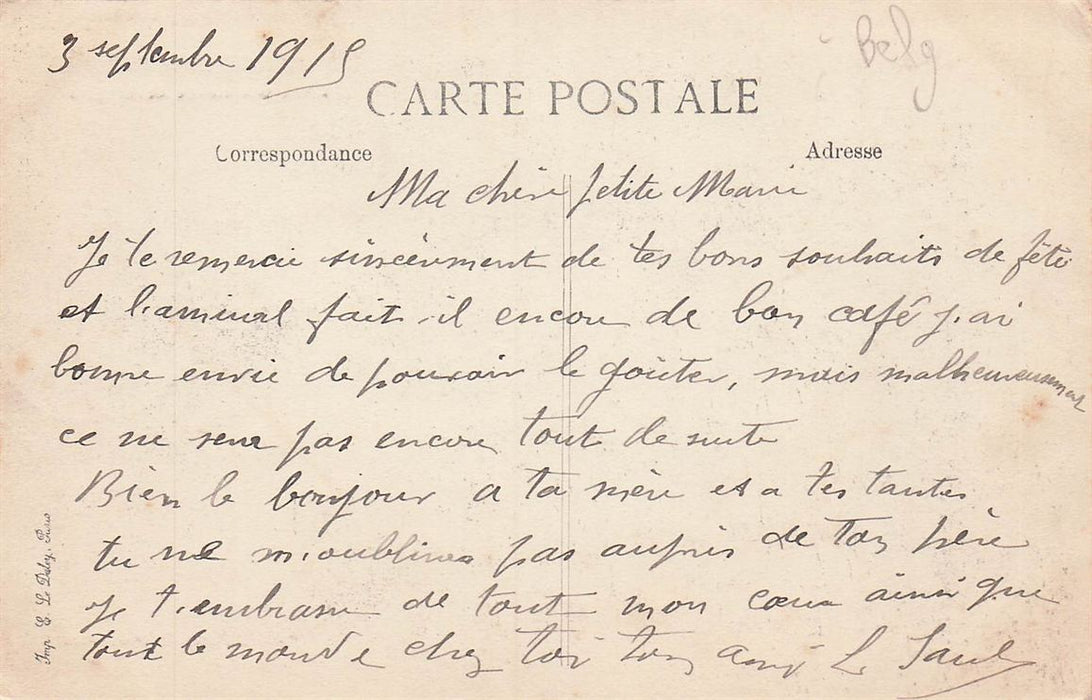 3 septembre 1915
Belg
CARTE POSTALE
Correspondance
Adresse
Ma chère petite Marie
Je te remercie sincèrement de tes bons souhaits de fête
et l'amiral fait-il encore de bon café j'ai
bonne envie de pouvoir le goûter, mais malheureusement
ce ne sera pas encore tout de suite
Bien le bonjour a ta mère et a tes tantes
tu ne m'oublieras pas auprès de ton père
je t'embrasse de tout mon cœur ainsi que
tout le monde chez toi ton ami L.
Imp. E. Le Deley, Paris